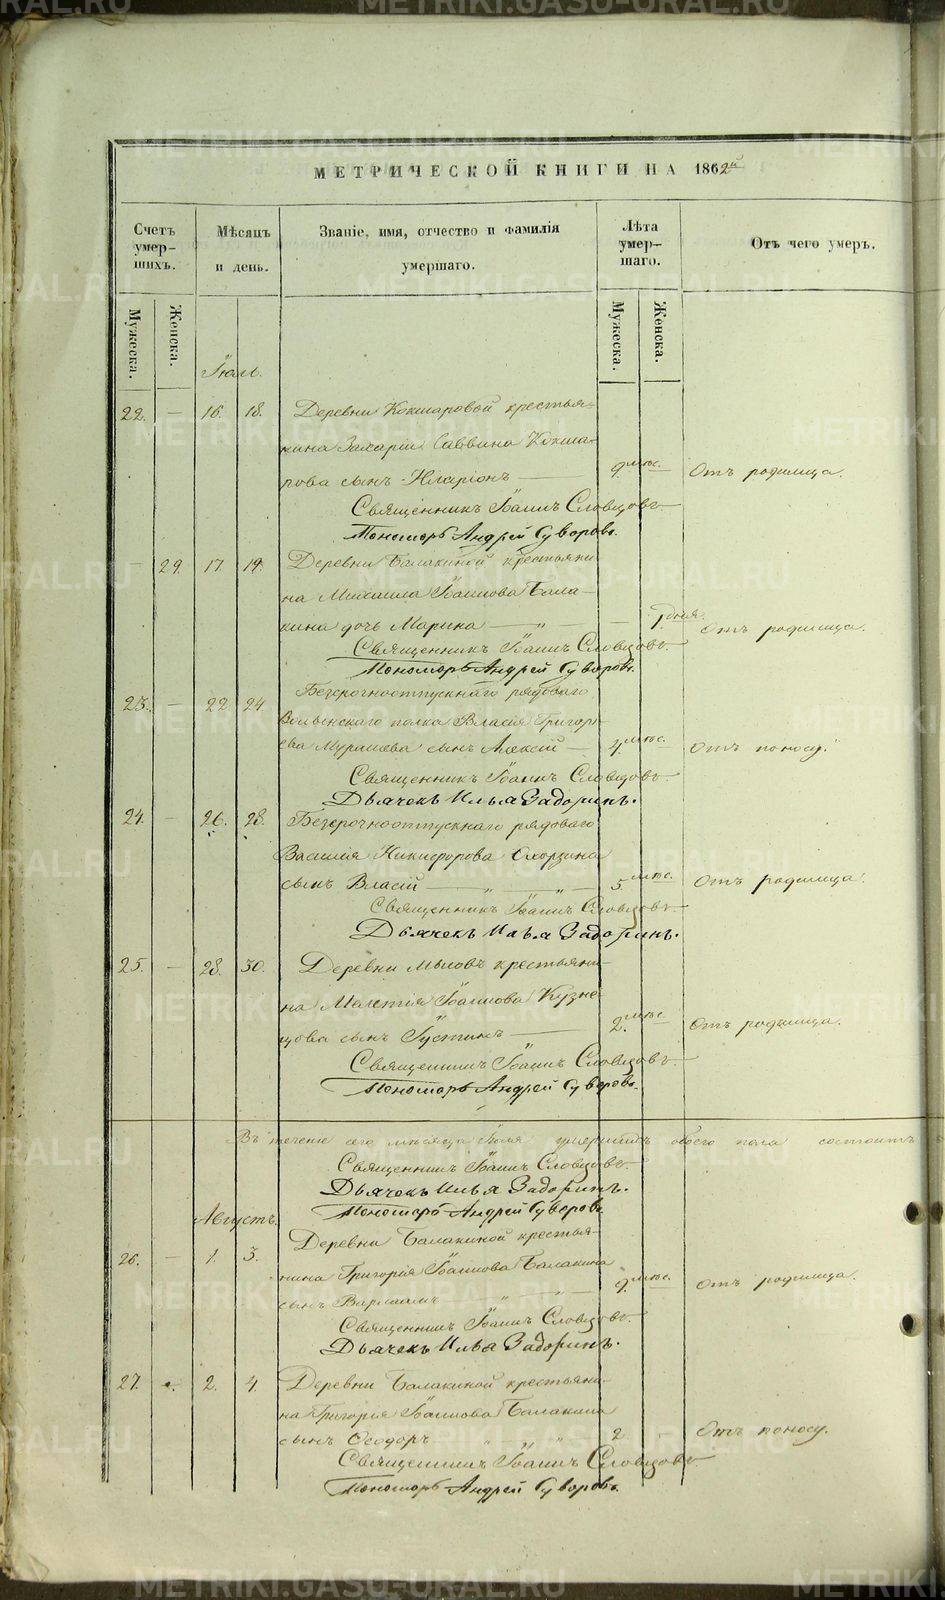 МЕТРИЧЕСКОЙ КНИГИ НА 1862й
Счетъ умер-шихъ.
Мѣсяцъ и день.
Званіе, имя, отчество и фамилія умершаго.
Лѣта умер-шаго.
Отъ чего умеръ.
Мужеска. Женска. Мужеска. Женска.
Іюль.
22. — 16. 18. Деревни Кокшаровой крестья-
нина Захарія Саввина Кокша-
рова сынъ Иларіонъ — 9. мѣс. Отъ родимца.
Священникъ Іоаннъ Словцовъ
Пономарь Андрей Суворовъ.
29. 17. 19. Деревни Балакиной крестьяни-
на Михаила Іоаннова Бала-
кина дочь Марина — „ — дня. Отъ родимца.
Священникъ Іоаннъ Словцовъ.
Пономарь Андрей Суворовъ.
23. — 22. 24. Безсрочноотпускнаго рядоваго
Волынскаго полка Власія Григорь-
ева сынъ Алексій — 4. мѣс. Отъ поносу.
Священникъ Іоаннъ Словцовъ
Дьячекъ Илья Задоринъ.
24. — 26. 28. Безсрочноотпускнаго рядоваго
Василія Никифорова
сынъ Власій — „ — „ — 5 мѣс. Отъ родимца.
Священникъ Іоаннъ Словцовъ.
Дьячекъ Илья Задоринъ.
25. — 28. 30. Деревни Мысовъ крестьяни-
на Мелетія Іоаннова Кузне-
цова сынъ Іустинъ — 2. мѣс. Отъ родимца.
Священникъ Іоаннъ Словцовъ.
Пономарь Андрей Суворовъ.
Въ теченіе сего мѣсяца Іюля умершихъ обоего пола состоитъ
Священникъ Іоаннъ Словцовъ.
Дьячекъ Илья Задоринъ.
Пономарь Андрей Суворовъ
Августъ.
26. — 1. 3. Деревни Балакиной крестья-
нина Григорія Іоаннова Балакина
сынъ Варлаамъ — „ — „ — 9. мѣс. Отъ родимца.
Священникъ Іоаннъ Словцовъ.
Дьячекъ Илья Задоринъ.
27. 2. 4. Деревни Балакиной крестьяни-
на Григорія Іоаннова Балакина
сынъ Ѳеодоръ „ — „ 2. — Отъ поносу.
Священникъ Іоаннъ Словцовъ
Пономарь Андрей Суворовъ.
METRIKI.GASO-URAL.RU